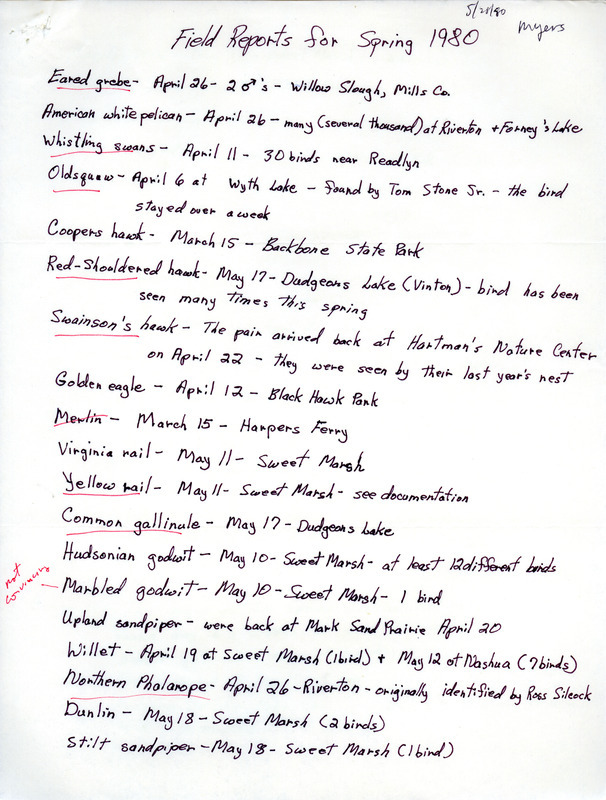 5/28/80
Myers
Field Reports for Spring 1980
Eared grebe - April 26 - 2 ♂'s - Willow Slough, Mills Co.
American white pelican - April 26 - many (several thousand) at Riverton + Forney's Lake
Whistling swans - April 11 - 30 birds near Readlyn
Oldsquaw - April 6 at Wyth Lake - found by Tom Stone Sr. - the bird
stayed over a week
Coopers hawk - March 15 - Backbone State Park
Red-Shouldered hawk - May 17 - Dudgeons Lake (Vinton) - bird has been
seen many times this spring
Swainson's hawk - The pair arrived back at Hartman's Nature Center
on April 22 - they were seen by their last year's nest
Golden eagle - April 12 - Black Hawk Park
Merlin - March 15 - Harpers Ferry
Virginia rail - May 11 - Sweet Marsh
Yellow rail - May 11 - Sweet Marsh - see documentation
Common gallinule - May 17 - Dudgeons Lake
Hudsonian godwit - May 10 - Sweet Marsh - at least 12 different birds
not
convincing
Marbled godwit - May 10 - Sweet Marsh - 1 bird
Upland sandpiper - were back at Mark Sand Prairie April 20
Willet - April 19 at Sweet Marsh (1 bird) + May 12 at Nashua (7 birds)
Northern Phalarope - April 26 - Riverton - originally identified by Ross Silcock
Dunlin - May 18 - Sweet Marsh (2 birds)
Stilt sandpiper - May 18 - Sweet Marsh (1 bird)